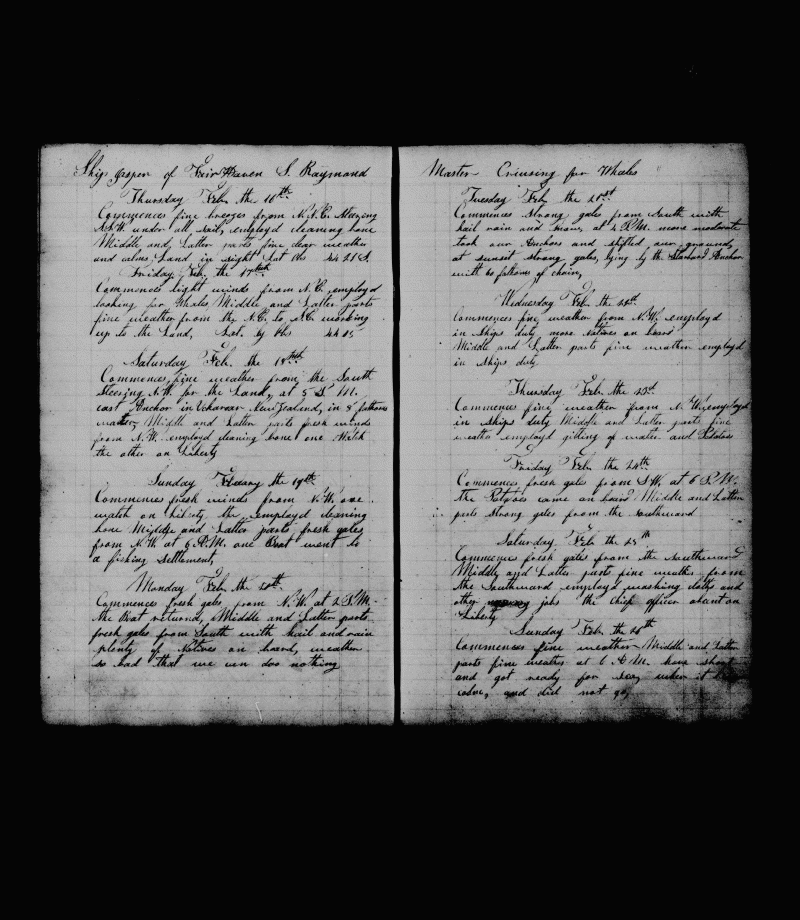 Ship of Fair Haven S. Raymond
Thursday Feb. the 16th
Commences fine breezes from N.N.E. Steering
under all sail, employd cleaning bone
Middle and Latter parts fine clear weather
and calms, Land in sight Lat Obs 44 21 S.
Friday Feb. the 17th
Commences light winds from N.E. employd
looking for Whales Middle and Latter parts
fine weather from the N.E. to working
up to the Land, Lat. by Obs 44 05
Saturday Feb. the 18th
Commences fine weather from the South
Steering N.W. for the Land, at 5 P.M.
cast Anchor in New Zealand, in 8 fathoms
water, Middle and Latter parts fresh winds
from N.W. employd cleaning bone one Watch
the other on Liberty
Sunday the 19th
Commences fresh winds from N.W. one
watch on Liberty the employd cleaning
bone Middle and Latter parts fresh gales
from N.W. at 6 P.M. one Boat went to
a fishing Settlement
Monday Feb. the 20th
Commences fresh gales from N.W. at 2 P.M.
the Boat returned, Middle and Latter parts
fresh gales from South with hail and rain
plenty of Natives on board, weather
so bad that we can doo nothing
Master Cruising for Whales
Tuesday Feb. the 21st
Commences Strong gales from South with
hail rain and Snow, at 4 P.M. more moderate
took our Anchors and shifted our ground,
at sunset strong gales, lying by the Starbord Anchor
with 60 fathoms of chain,
Wednesday Feb. the 22d
Commences fine weather from N.W. employd
in Ships duty more natives on board
Middle and Latter parts fine weather employd
in Ships duty
Thursday Feb. the 23d
Commences fine weather from N.W. employd
in Ships duty Middle and Latter parts fine
weather employd gitting of water and Potatoes
Friday Feb. the 24th
Commences fresh gales from S.W. at 6 P.M.
the came on board Middle and Latter
parts strong gales from the Southward
Saturday Feb. the 25th
Commence fresh gales from the Southward
Middle and Latter part fine weather from
the Southward employd washing and
other jobs the chief officer on
Liberty
Sunday Feb. the 26th
Commences fine weather Middle and Latter
parts fine weather at A.M. hove short
and got ready for Sea, when it
came, and did not go,